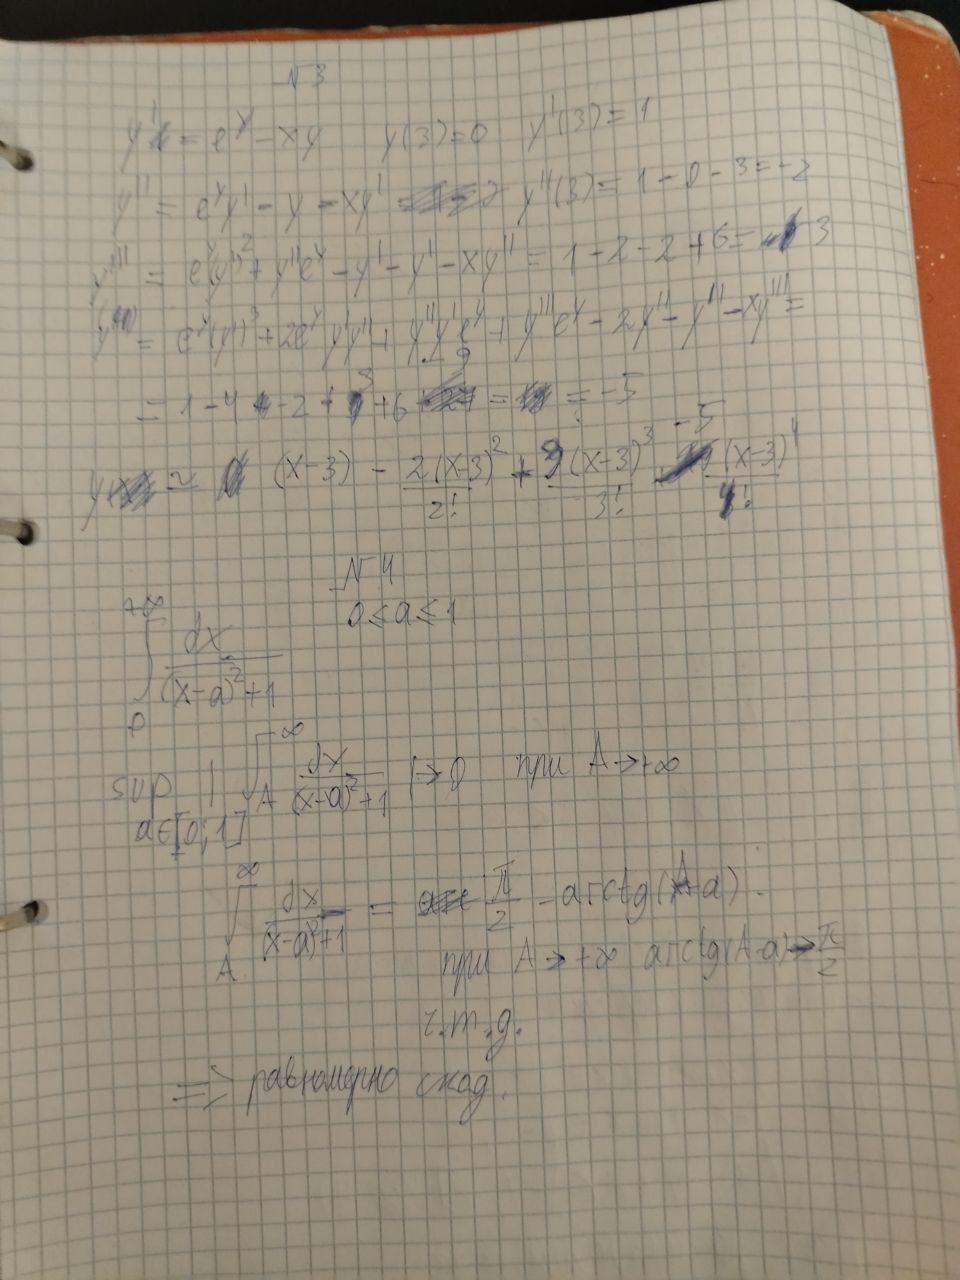 №3
y' = e^y - xy y(3)=0 y'(3)=1
y'' = e^y y' - y - xy' y''(3) = 1-0-3=-2
y''' = e^y(y')^2 + y''e^y - y' - y' - xy'' = 1-2-2+6= 3
= e^y(y')^3 + 2e^y y'y'' + y''y'e^y + y'''e^y - 2y'' - y''' - xy''' =
= 1-4 -2 + 3 +6 = = -5
y ≈ (x-3) - 2(x-3)^2/2! + 3(x-3)^3/3! -5(x-3)^4/4!
№4
0≤a≤1
∫_0^{+∞} dx/((x-a)^2+1)
sup_{a∈[0;1]} |∫_A^∞ dx/((x-a)^2+1)| → 0 при A→+∞
∫_A^∞ dx/((x-a)^2+1) = π/2 - arctg(A-a)
при A→+∞ arctg(A-a)→π/2
ч.т.д.
=> равномерно сход.